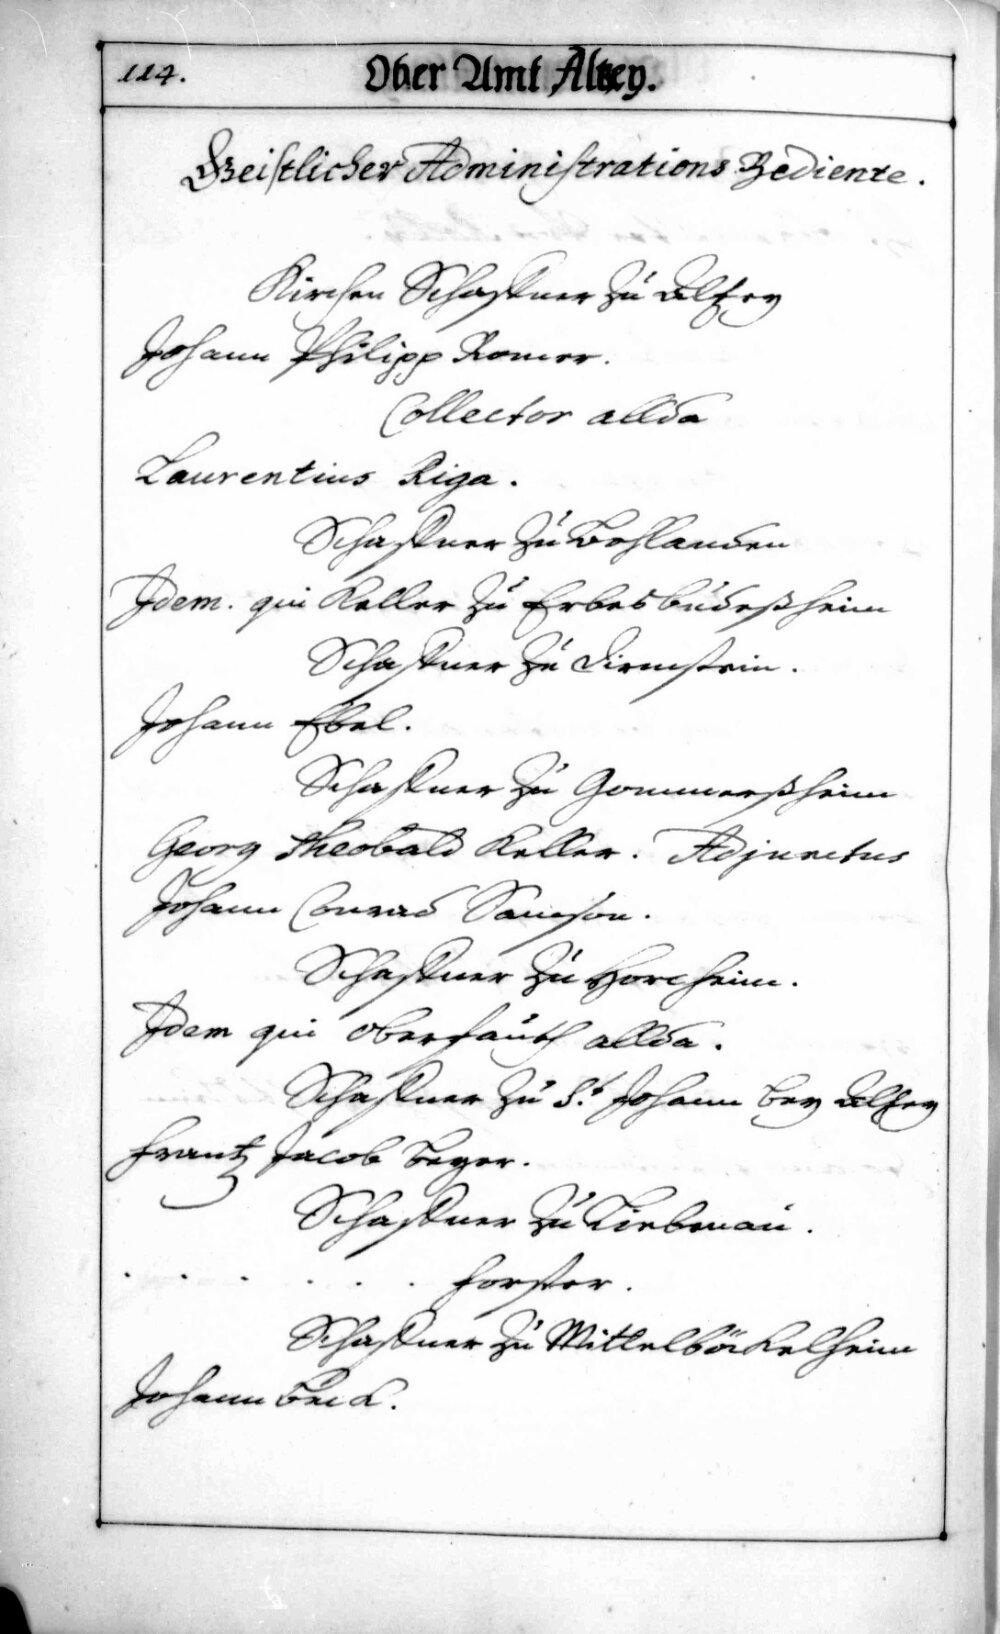 114.
Ober Amt Altzey.
Geistlicher Administrations Bediente.
Kirchen Schaffner zu Altzey
Johann Philipp Romer.
Collector allda
Laurentius Riga.
Schaffner zu Bohlanden
Idem. qui Keller zu Erbesbüdeßheim
Schaffner zu Dirmstein.
Johann Ebel.
Schaffner zu Gommerßheim
Georg Theobald Keller. Adjunctus
Johann Conrad Samson.
Schaffner zu Horcheim.
Idem qui Oberfauth allda.
Schaffner zu St. Johann bey Altzey
Frantz Jacob Beyer.
Schaffner zu Liebenau.
. . . . . . Forster.
Schaffner zu Mittelböckelheim
Johann Beck.